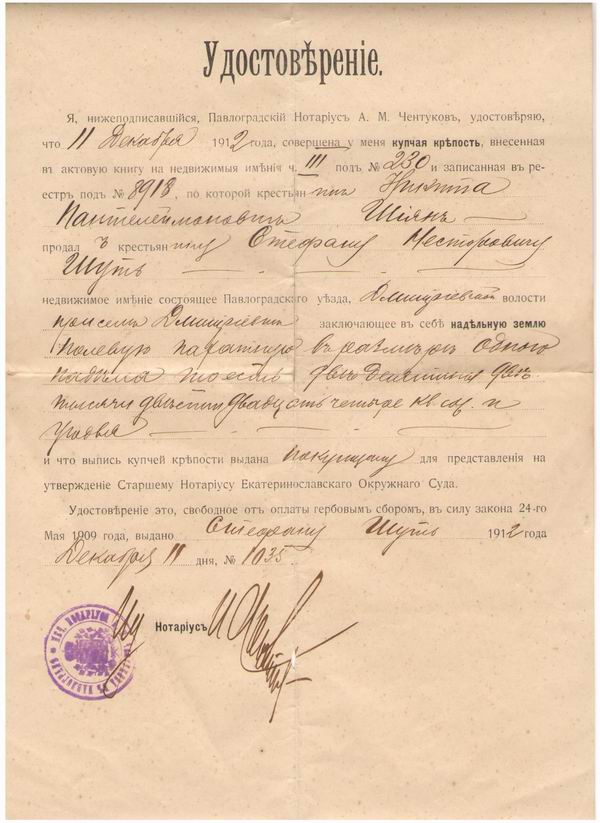 Удостовѣреніе.
Я, нижеподписавшійся, Павлоградскій Нотаріусъ А. М. Чентуковъ, удостовѣряю,
что 11 Декабря 1912 года, совершена у меня купчая крѣпость, внесенная
въ актовую книгу на недвижимыя имѣнія ч. III подъ № 230 и записанная въ ре-
естръ подъ № 8913, по которой крестьян Никита
Пантелеймоновичъ Шіянъ
продалъ крестьян Стефану Несторовичу
Шуть
недвижимое имѣніе состоящее Павлоградскаго уѣзда, Дмитріевской волости
при селѣ Дмитріевкѣ заключающее въ себѣ надѣльную землю
полевую пахатную въ размѣрѣ одного
надѣла то есть двѣ десятины двѣ
тысячи двѣсти двадцать четыре кв. саж. и
и что выпись купчей крѣпости выдана покупщику для представленія на
утвержденіе Старшему Нотаріусу Екатеринославскаго Окружнаго Суда.
Удостовѣреніе это, свободное отъ оплаты гербовымъ сборомъ, въ силу закона 24-го
Мая 1909 года, выдано Стефану Шуть 1912 года
Декабря 11 дня, № 1035.
Нотаріусъ